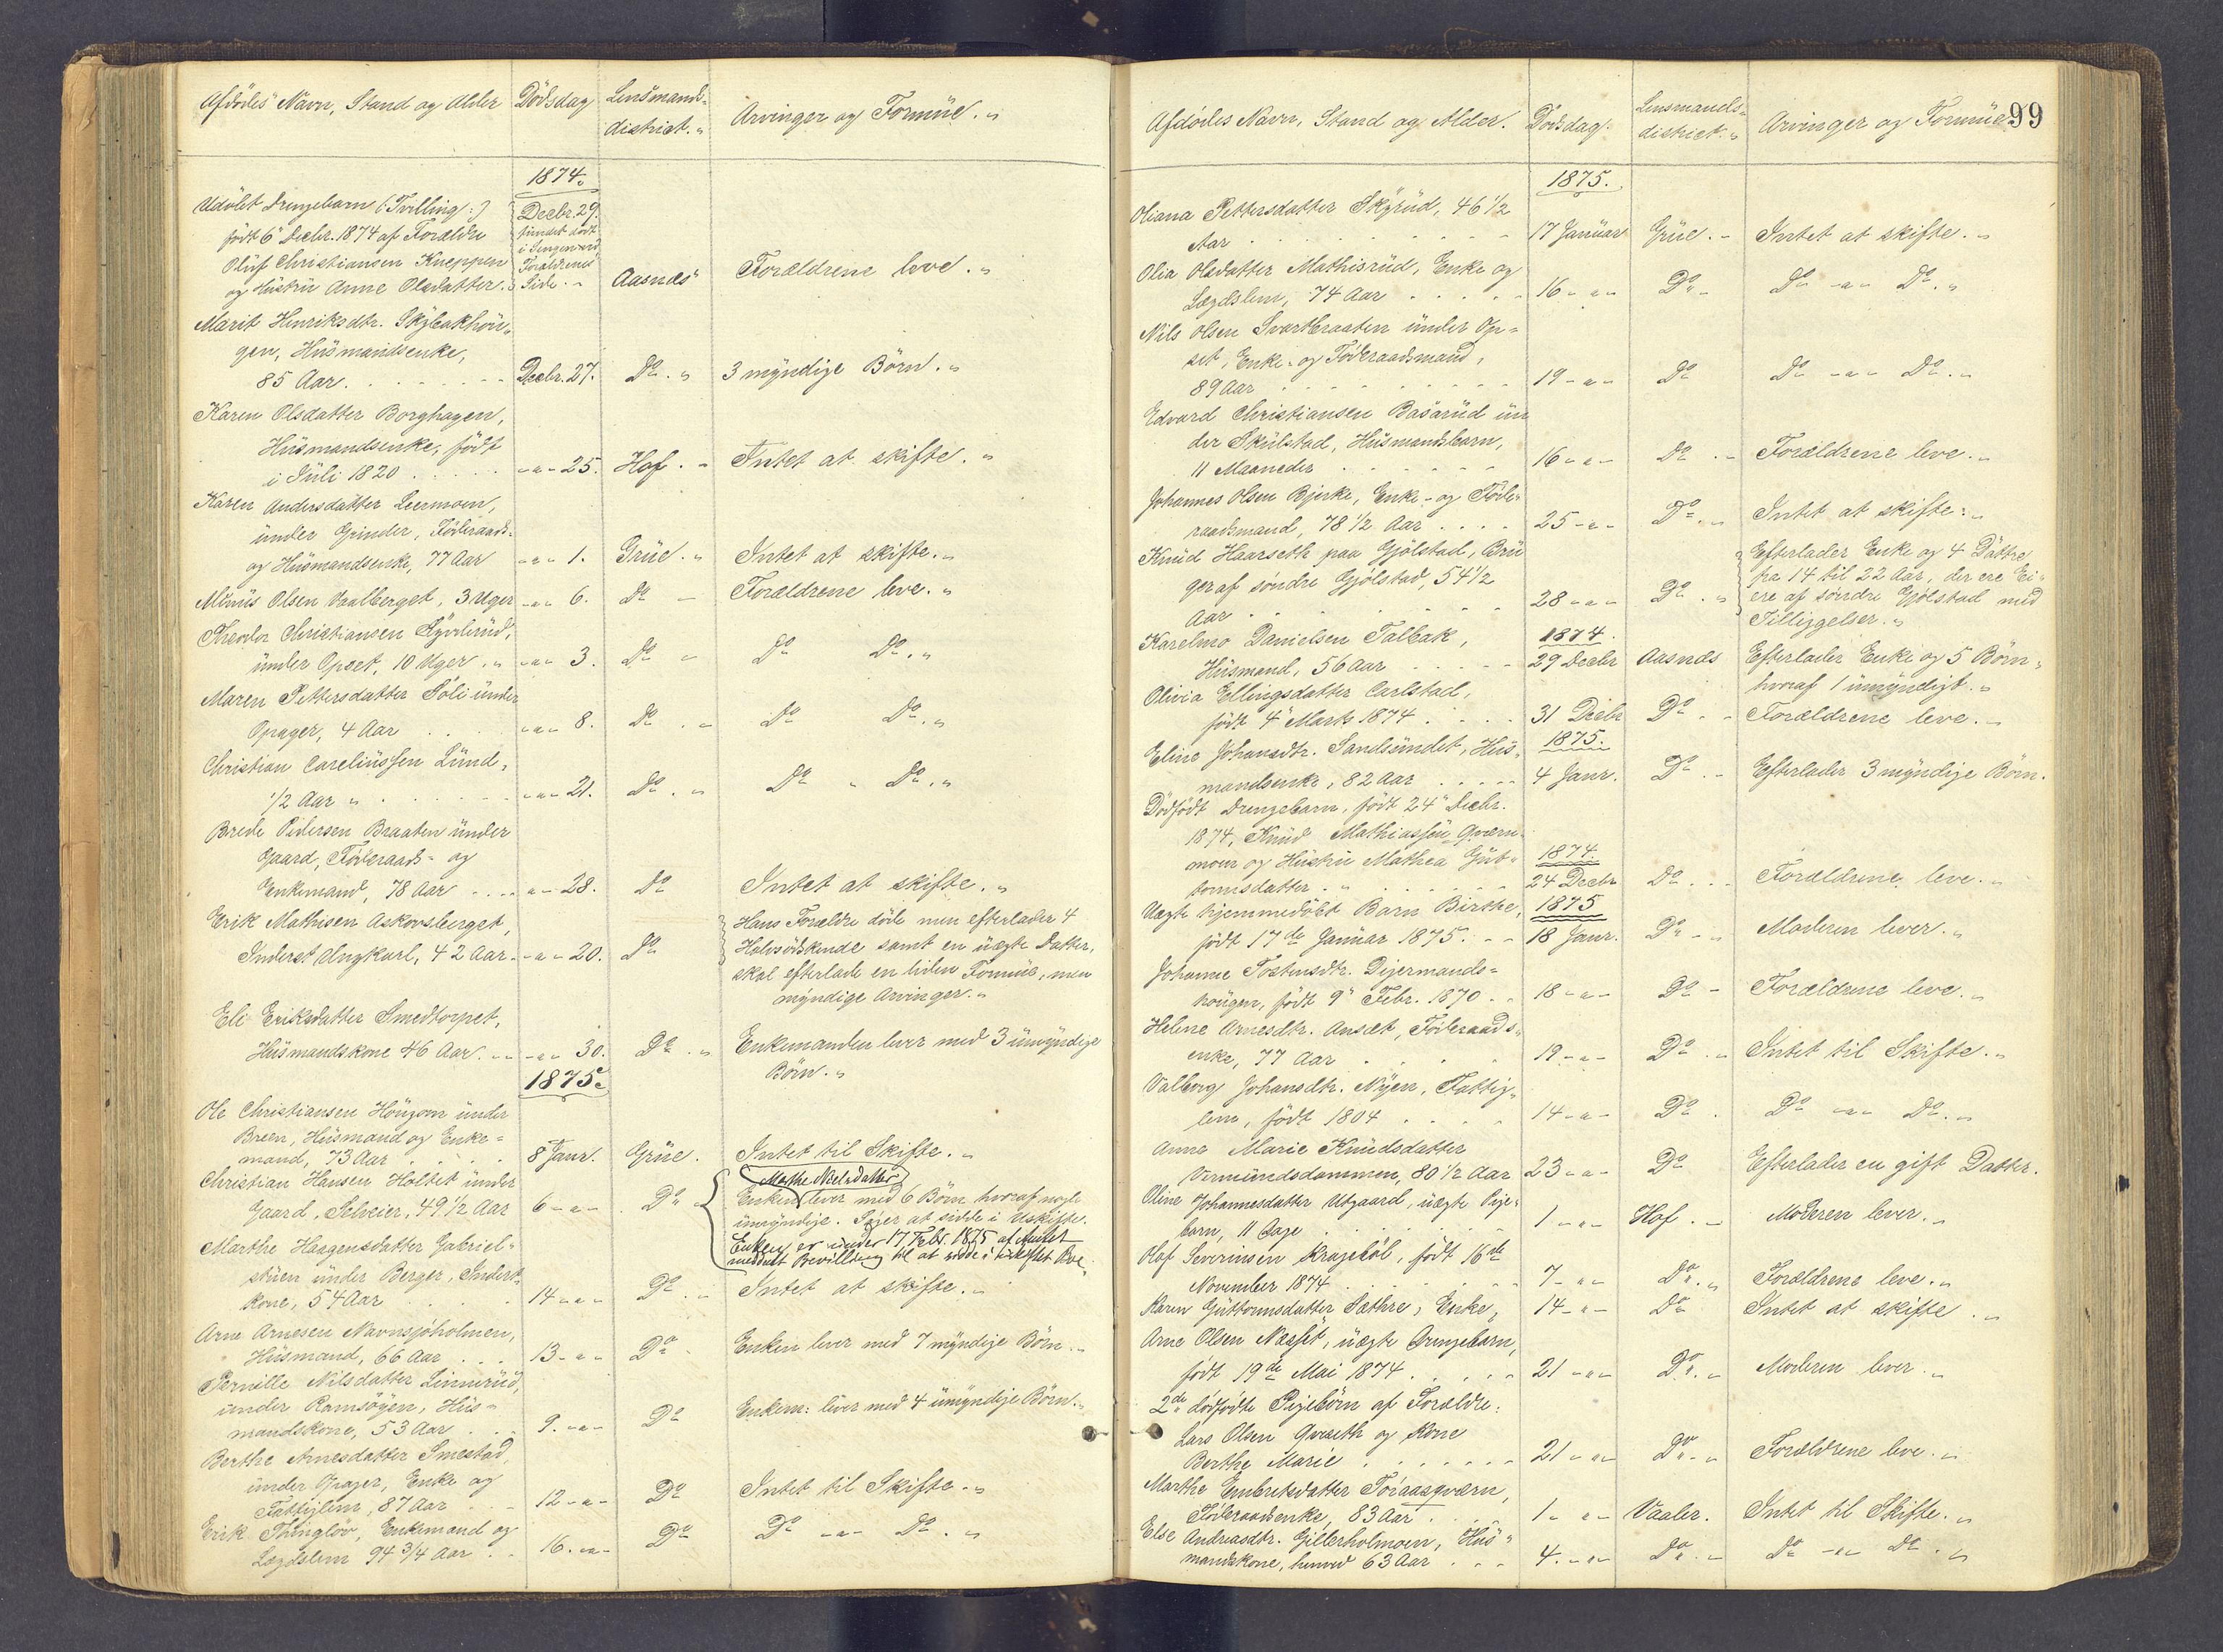 Afdødes Navn, Stand og Alder
Dødsdag
Lensmands-
district. "
Arvinger og Formue. "
1874.
Udøbt Drengebarn (: Tvilling :)
født 6" Decbr. 1874 af Forældre
Oluf Christiansen Kneppen
og Hustru Anne Olsdatter.
Decbr. 29.
fundet død
i Sengen ved
Forældrenes
Side. "
Aasnæs
Forældrene leve. "
Marit Henriksdtr. Skybakhou-
gen, Husmandsenke,
85 Aar.
Decbr. 27.
Do. "
3 myndige Børn. "
Karen Olsdatter Borghagen,
Husmandsenke, født
i Juli 1820
-"- 25.
Hof. "
Intet at skifte. "
Karen Andersdatter Leermoen,
under Grinder, Føderaads-
og Husmandsenke, 77 Aar
-"- 1.
Grue. "
Intet at skifte. "
Minus Olsen Vaalberget, 3 Uger
-"- 6.
Do "
Forældrene leve. "
Theodor Christiansen
under Opset, 10 Uger. "
-"- 3.
Do "
Do Do. "
Maren Pettersdatter Søli under
Opager, 4 Aar
-"- 8.
Do. "
Do Do. "
Christian Careliussen Lund,
1/2 Aar "
-"- 21.
Do. "
Do " Do. "
Brede Pedersen Braaten under
Gaard, Føderaads- og
Enkemand, 78 Aar
-"- 28.
Do
Intet at skifte. "
Erik Mathisen Askovsberget,
Inderst Ungkarl, 42 Aar.
-"- 20.
Do
Hans Forældre døde men efterlader 4
Halvsødskende samt en uægte Datter,
skal efterlade en liden Formue, men
myndige Arvinger. "
Eli Eriksdatter Smedtorpet,
Husmandskone 46 Aar.
-"- 30.
Do. "
Enkemanden lever med 3 umyndige
Børn. "
1875.
Ole Christiansen Hougom under
Breen, Husmand og Enke-
mand, 73 Aar
8 Janr.
Grue.
Intet til Skifte. "
Christian Hansen Holtet under
Gaard, Selveier, 49 1/2 Aar
6 -"-
Do "
Marthe Nielsdatter
Enken lever med 6 Børn hvoraf nogle
umyndige. Siger at sidde i Uskifte.
Enken er under 17 Febr. 1875 af Amtet
meddelt Bevilling til at sidde i uskiftet Boe.
Marthe Haagensdatter Gabriel-
stuen under Berger, Inderst-
kone, 54 Aar
14 -"-
Do. "
Intet at skifte. "
Arne Arnesen Navnsjøholmen,
Husmand, 66 Aar
13 -"-
Do
Enken lever med 7 myndige Børn. "
Pernille Nilsdatter Linnerud,
under Ramsøgen, Hus-
mandskone, 53 Aar
9. -"-
Do
Enkem: lever med 4 umyndige Børn. "
Berthe Arnesdatter Smestad,
under Opager, Enke og
Fattiglem, 87 Aar
12 -"-
Do
Intet til Skifte. "
Erik Thingløv, Enkemand og
Lægdslem 94 3/4 Aar
16. -"-
Do
Do -"- Do. "
Afdødes Navn, Stand og Alder.
Dødsdag.
Lensmands-
district. "
Arvinger og Formue
99
1875.
Oliana Pettersdatter Skyrud, 46 1/2
Aar
17 Januar
Grue. "
Intet at skifte. "
Olia Olsdatter Mathisrud, Enke og
Lægdslem, 74 Aar
16 -"-
Do "
Do -"- Do. "
Nils Olsen Svartbraaten under Op-
set, Enke- og Føderaadsmand,
89 Aar
19 -"-
Do
Do -"- Do. "
Edvard Christiansen Basarud un
der Skulstad, Husmandsbarn,
11 Maaneder
16 -"-
Do "
Forældrene leve. "
Johannes Olsen Bjerke, Enke- og Føde-
raadsmand, 78 1/2 Aar
25 -"-
Do. "
Intet at skifte. "
Knud Haarseth paa Gjølstad, Bru
ger af søndre Gjølstad, 54 1/2
Aar
28 -"-
Do. "
Efterlader Enke og 4 Døttre
fra 14 til 22 Aar, der ere Ei-
ere af søndre Gjølstad med
Tilliggelser. "
Karelmo Danielsen Talbak,
Husmand, 56 Aar
1874.
29 Decbr
Aasnæs
Efterlader Enke og 5 Børn,
hvoraf 1 umyndigt. "
Olivia Ellingsdatter Carlstad,
født 4" Marts 1874
31 Decbr
Do. "
Forældrene leve. "
Eline Johansdtr. Sandsundet, Hus-
mandsenke, 82 Aar
1875.
4 Janr.
Do. "
Efterlader 3 myndige Børn.
Dødfødt Drengebarn, født 24" Decbr.
1874, Knud Mathiassen Qværn-
moen og Hustru Mathea Gut-
tormsdatter. "
1874.
24 Decbr
Do. "
Forældrene leve. "
Uægte hjemmedøbt Barn Birthe,
født 17de Januar 1875.
1875
18 Janr.
Do "
Moderen lever. "
Johanne Tostensdtr. Digermands-
hougen, født 9" Febr. 1870
18 -"-
Do "
Forældrene leve. "
Helene Arnesdtr. Ansæt, Føderaads-
enke, 77 Aar
19 -"-
Do. "
Intet til Skifte. "
Valborg Johansdtr. Nyen, Fattig-
lem, født 1804
14 -"-
Do.
Do -"- Do. "
Anne Marie Knudsdatter
Vermundsdammen, 80 1/2 Aar
23 -"-
Do
Efterlader en gift Datter.
Oline Johannesdatter Utgaard, uægte Pige-
barn, 11 Dage
1 -"-
Hof. "
Moderen lever. "
Olaf Severinsen Kragebøl, født 16de
November 1874
7 -"-
Do. "
Forældrene leve. "
Karen Guttormsdatter Sæthre, Enke,
14 -"-
Do
Intet at skifte. "
Arne Olsen Næsset, uægte Drengebarn,
født 19de Mai 1874
21 -"-
Do. "
Moderen lever. "
2de dødfødte Pigebørn af Forældre:
Lars Olsen Qvæseth og Kone
Berthe Marie
21 -"-
Do. "
Forældrene leve. "
Marthe Embretsdatter Toraasqværn,
Føderaadsenke, 83 Aar
1 -"-
Vaaler.
Intet til Skifte. "
Else Andreasdtr. Gillerholmoen, Hus-
mandskone, henved 63 Aar
4. -"-
Do. "
Do -"- Do. "